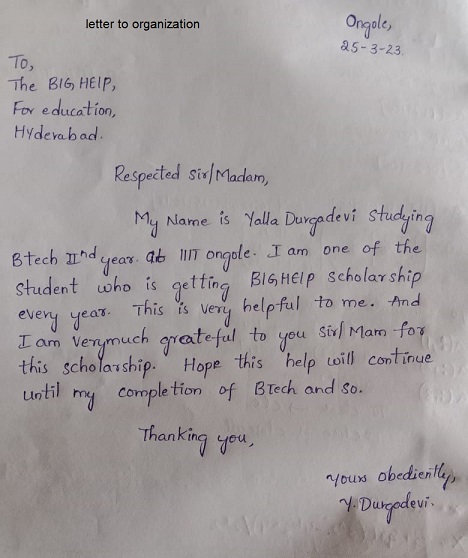 letter to organization
Ongole,
25-3-23
To,
The BIG HElP,
For education,
Hyderabad.
Respected Sir/Madam,
My Name is Yalla Durgadevi Studying
Btech IInd year. at IIIT ongole. I am one of the
Student who is getting BIGHElP Scholarship
every year. This is very helpful to me. And
I am verymuch greateful to you Sir/Mam for
this scholarship. Hope this help will continue
until my completion of BTech and so.
Thanking you,
yours obediently,
Y. Durgadevi.